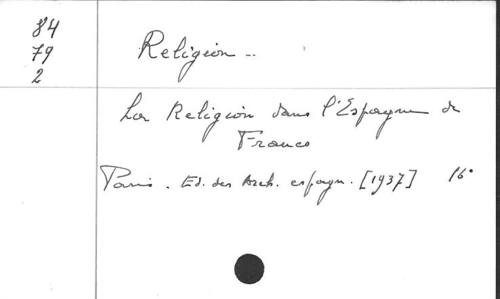 84
79
2
Religion -
La Religion dans l'Espagne de
Franco
Paris. Ed. des Arch. espagn. [1937] 16°